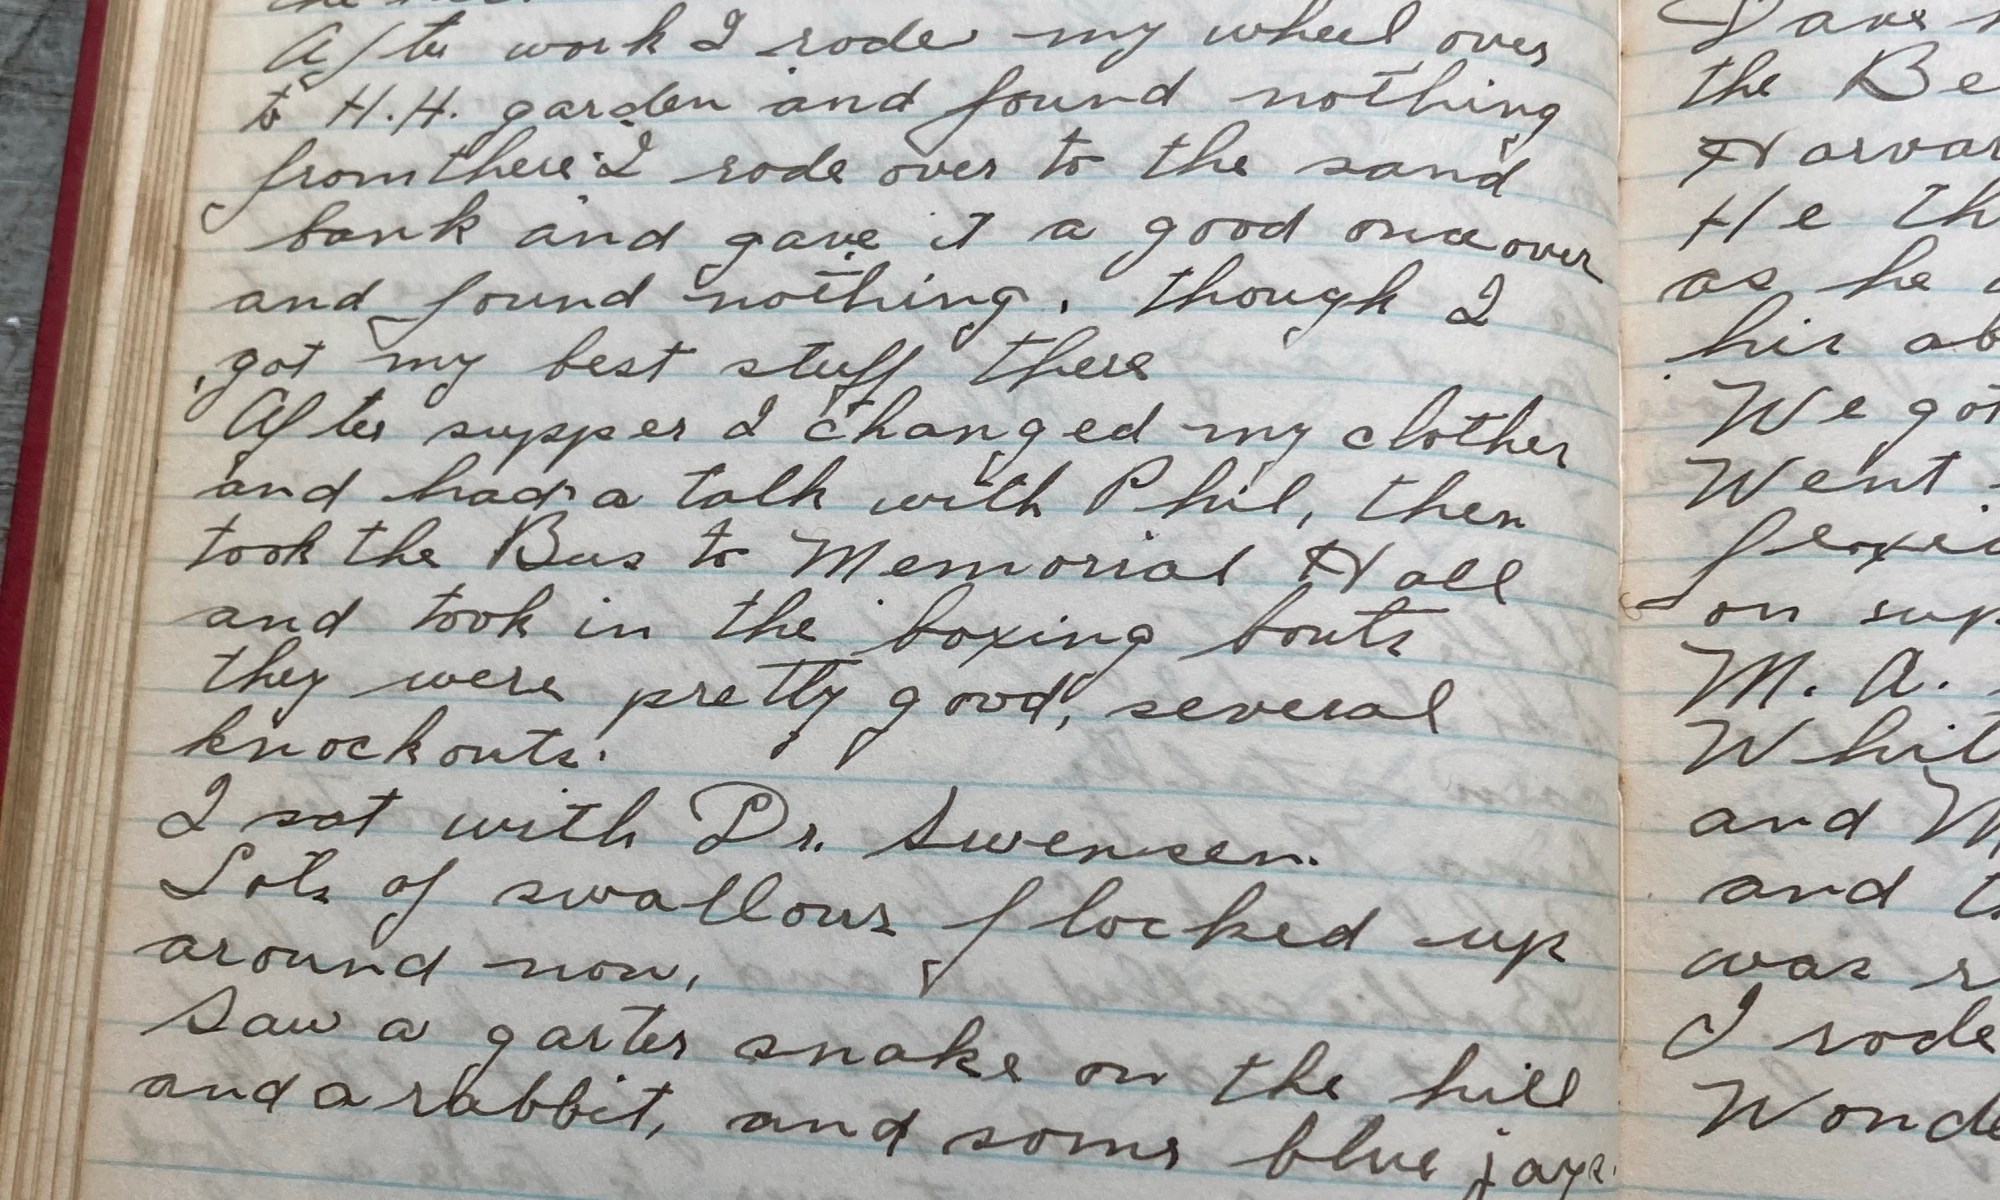 After work I rode my wheel over
to H.H. garden and found nothing
from there I rode over to the sand
bank and gave it a good once over
and found nothing. though I
got my best stuff there
After supper I changed my clothes
and had a talk with Phil, then
took the Bus to Memorial Hall
and took in the boxing bouts
they were pretty good, several
knockouts.
I sat with Dr. Swensen.
Lots of swallows flocked up
around now,
Saw a garter snake on the hill
and a rabbit, and some blue jays.
the Be
Harvar
He th
as he
his ab
We got
Went
on sup
M. A.
Whit
and M
and th
was r
I rode
Wonde